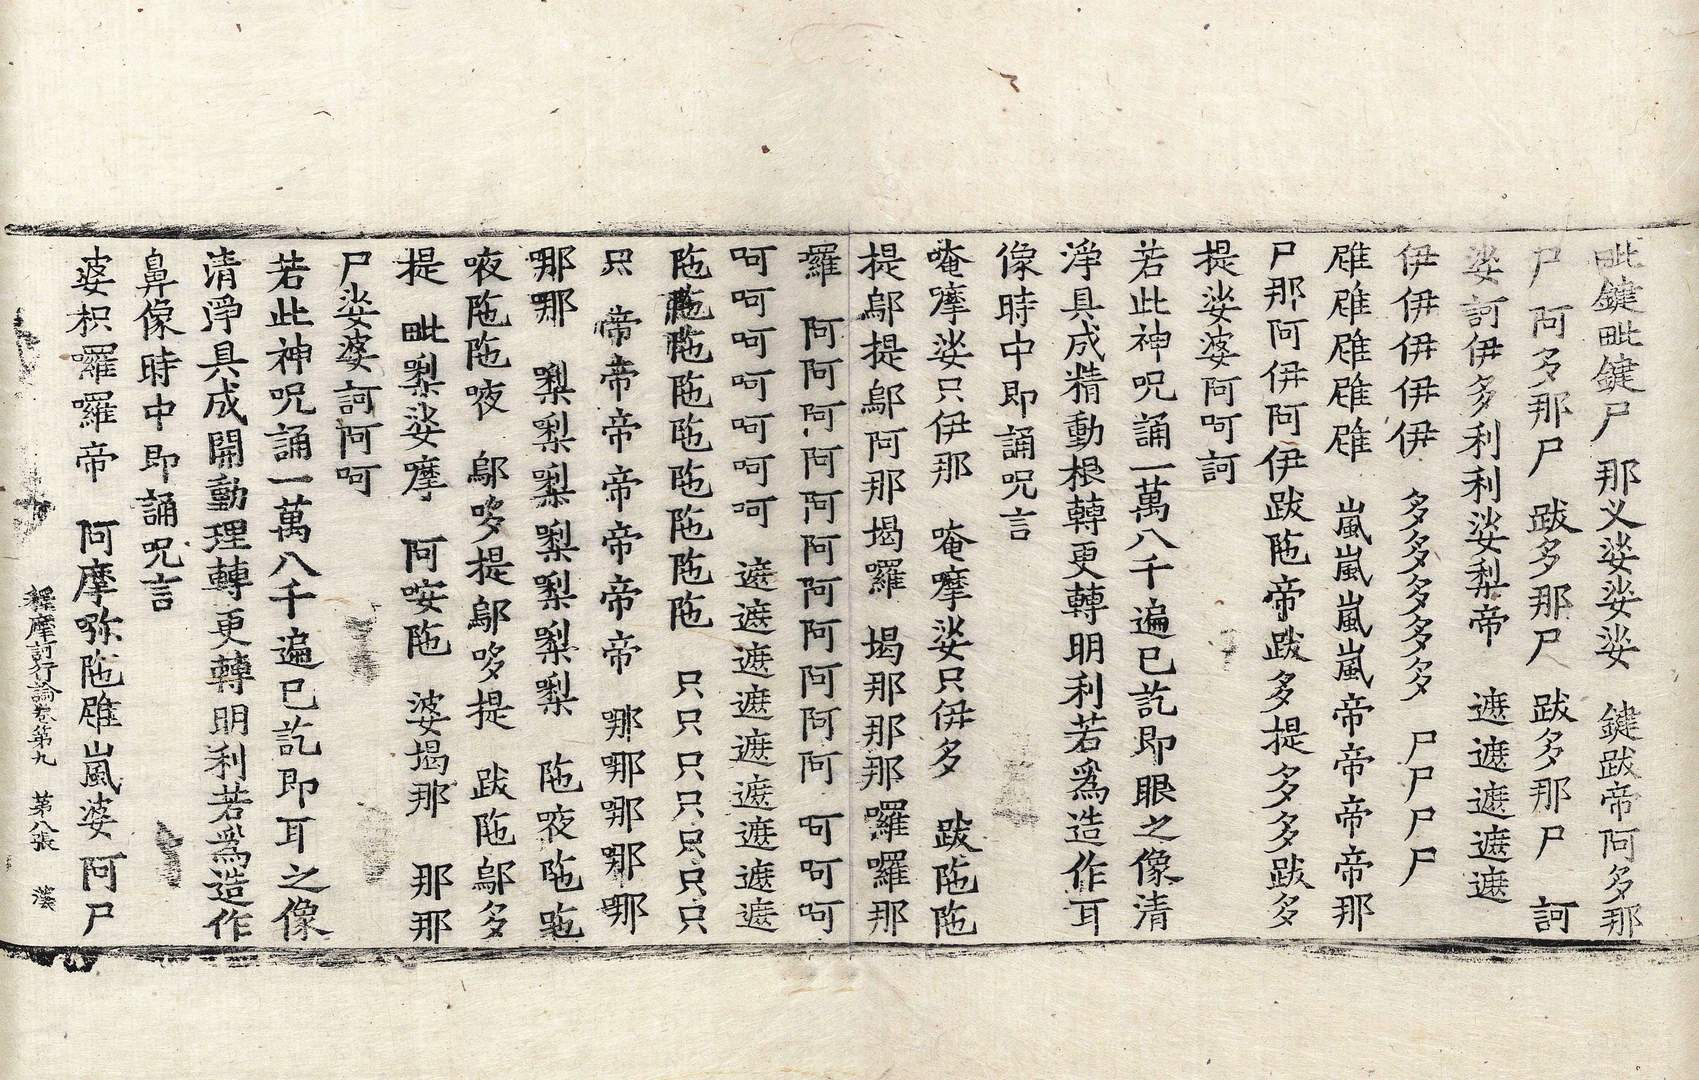 毗鍵毗鍵尸　那义娑娑娑　鍵跋帝阿多那
尸　阿多那尸　跋多那尸　跋多那尸　訶
娑訶伊多利利娑梨帝　遮遮遮遮遮
伊伊伊伊伊　多多多多多　尸尸尸尸
雎雎雎雎雎　嵐嵐嵐嵐嵐帝帝帝帝帝那
尸那阿伊阿伊跋陁帝跋多提多多跋多
提娑婆阿呵訶
若此神呪誦一萬八千遍已訖即眼之像清
淨具成精動根轉更轉明利若爲造作耳
像時中即誦呪言
唵摩娑只伊那　唵摩娑只伊多　跋陁陁
提鄔提鄔阿那揭羅　揭那那那囉囉那
羅　阿阿阿阿阿阿阿阿阿阿阿　呵呵呵
呵呵呵呵呵呵呵　遮遮遮遮遮遮遮遮遮
陁陁陁陁陁陁陁陁陁　只只只只只只只
只　帝帝帝帝帝帝帝帝　哪哪哪哪哪
哪哪　梨梨梨梨梨梨梨梨　陁夜陁陁
夜陁陁夜　鄔哆提鄔哆提　跋陁鄔多
提　毗梨娑摩　阿咹陁　婆揭那　那那
尸娑婆訶阿呵
若此神呪誦一萬八千遍已訖即耳之像
清淨具成開動理轉更轉明利若爲造作
鼻像時中即誦呪言
婆枳囉囉帝　阿摩弥陁雎嵐婆　阿尸
釋摩訶衍論卷第九　第八張　漢